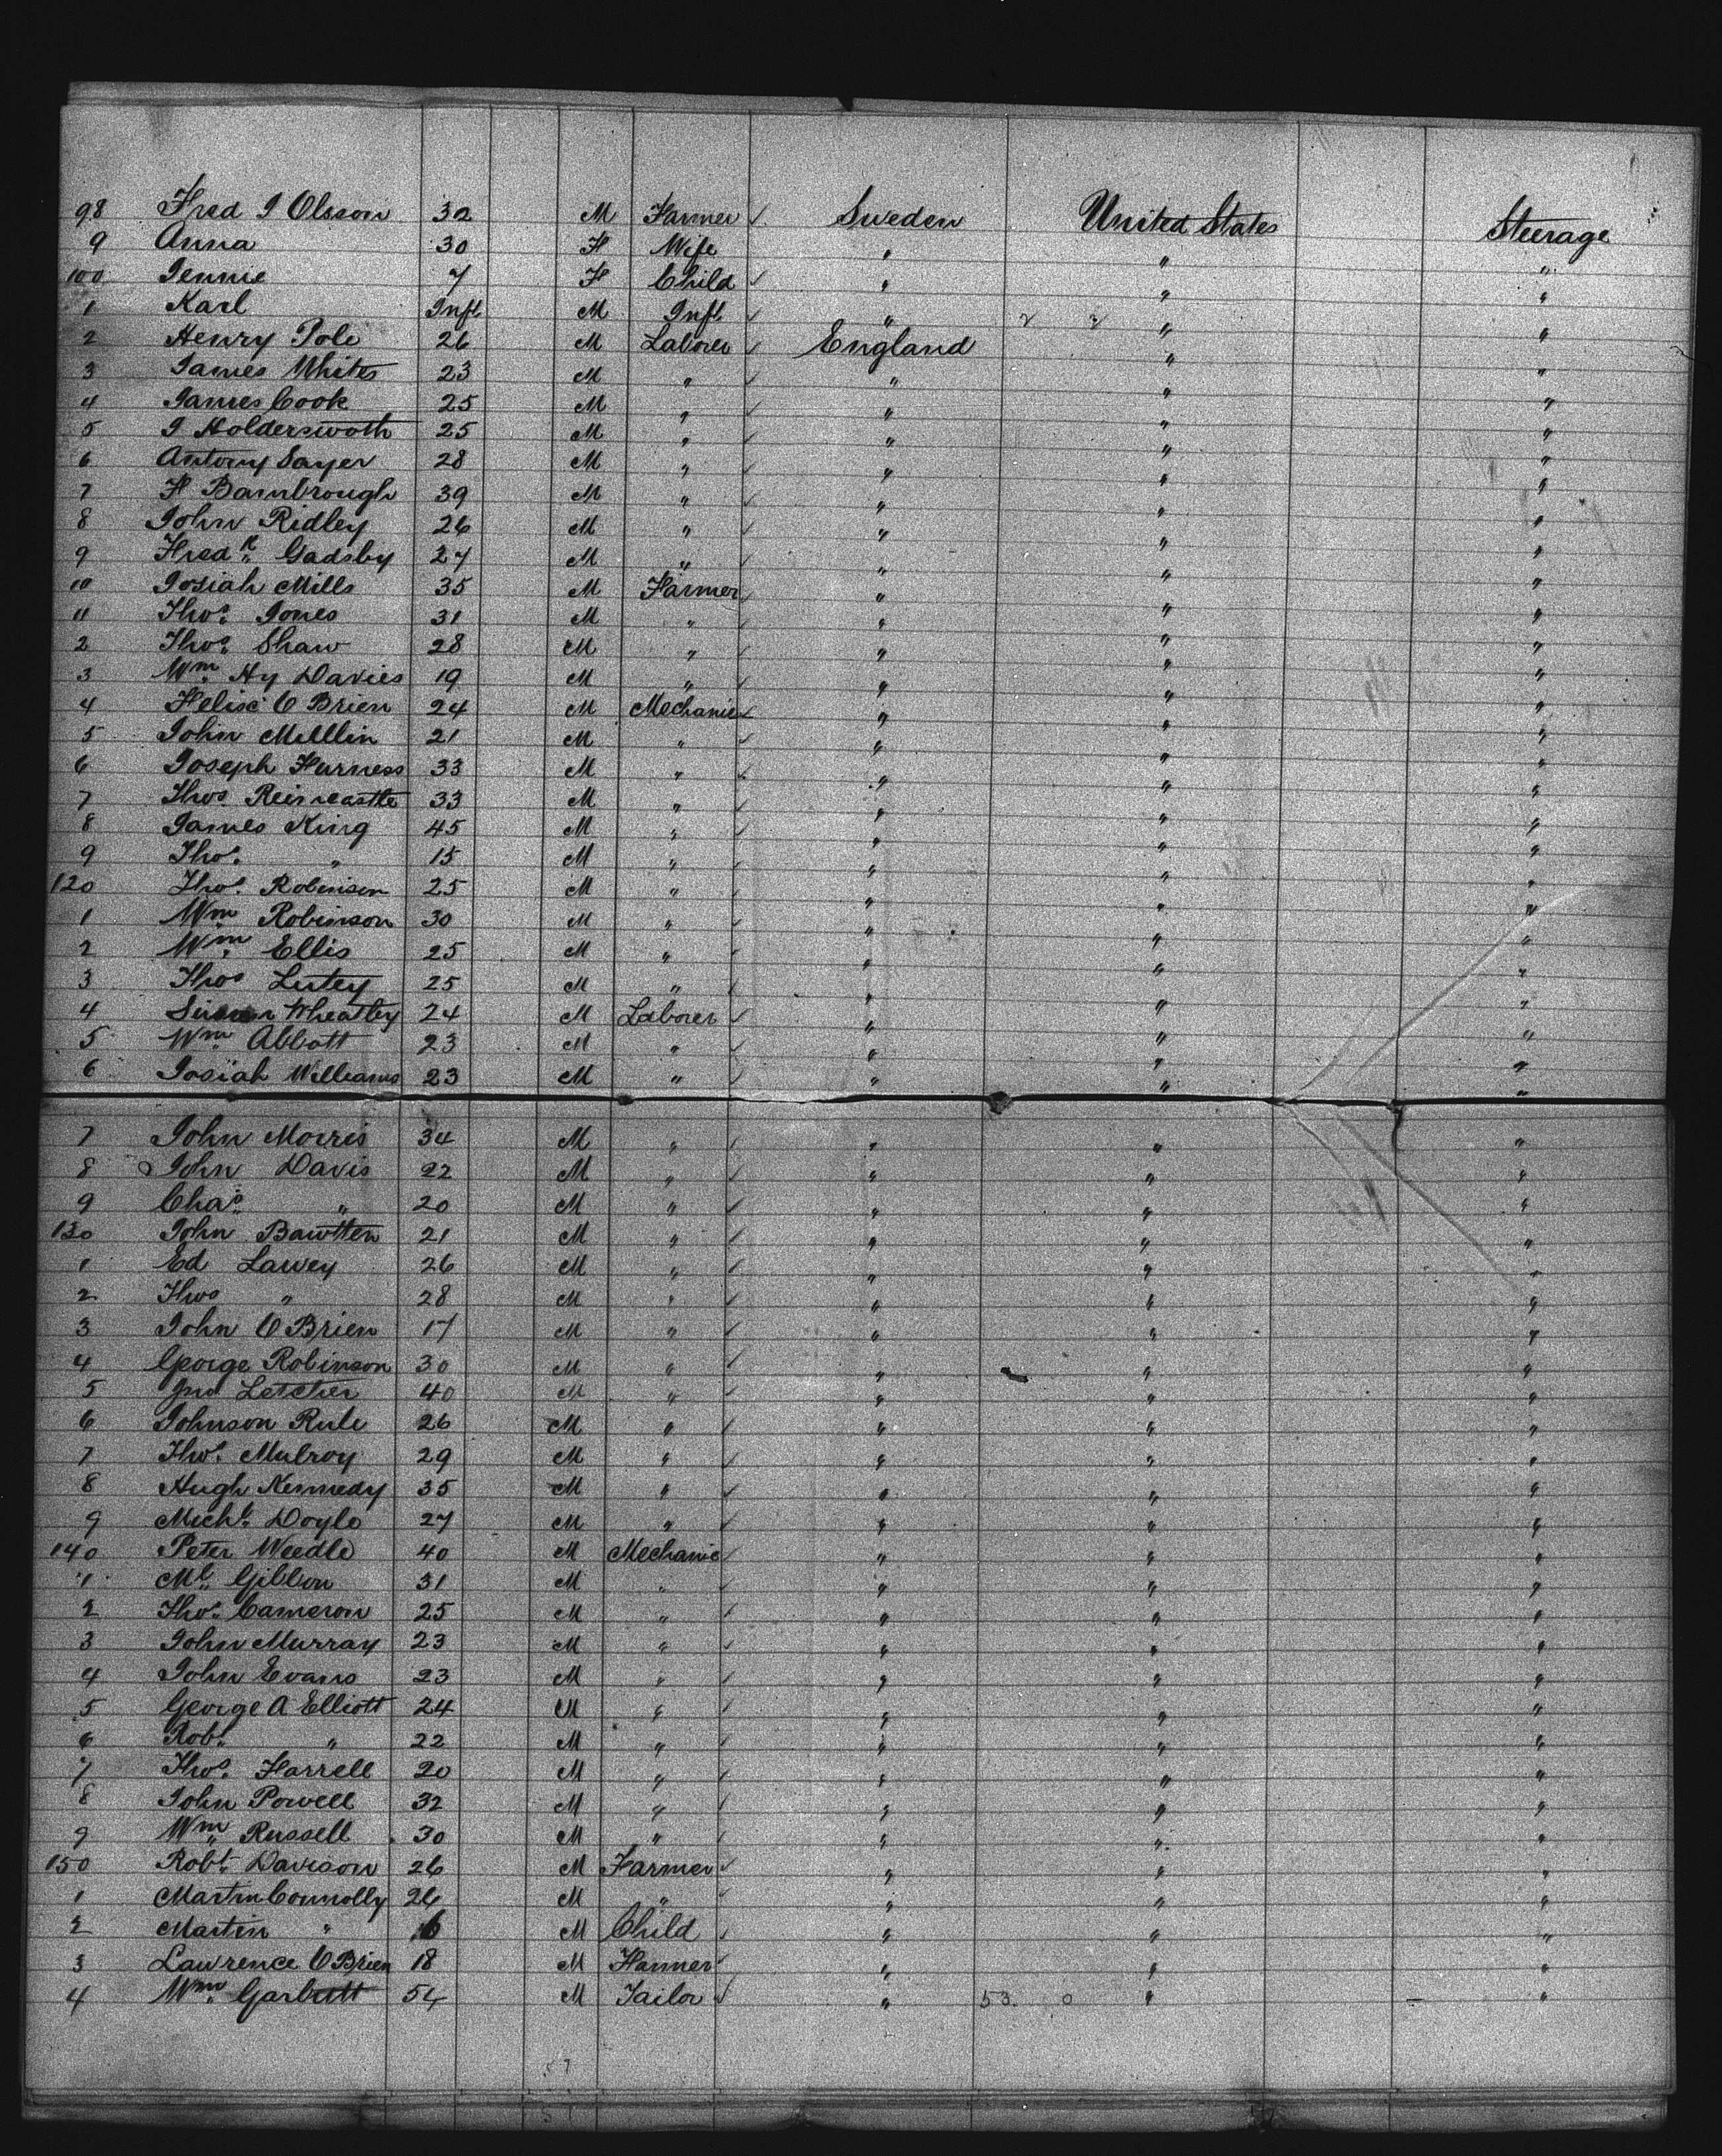 98 Fred J Olsson 32 M Farmer ✓ Sweden United States Steerage
9 Anna 30 F Wife " " "
100 Jennie 7 F Child ✓ " " "
1 Karl Inft M Inft ✓ " " "
2 Henry Pole 26 M Laborer ✓ England " "
3 James Whites 23 M " ✓ " " "
4 James Cook 25 M " ✓ " " "
5 J Holdersworth 25 M " ✓ " " "
6 Antony Sayer 28 M " ✓ " " "
7 F Bambrough 39 M " ✓ " " "
8 John Ridley 26 M " ✓ " " "
9 Fredk Gadsby 27 M " ✓ " " "
10 Josiah Mills 35 M Farmer ✓ " " "
11 Thos. Jones 31 M " ✓ " " "
2 Thos. Shaw 28 M " ✓ " " "
3 Wm. Hy Davies 19 M " ✓ " " "
4 O Brien 24 M Mechanic ✓ " " "
5 John 21 M " ✓ " " "
6 Joseph Furness 33 M " ✓ " " "
7 Thos 33 M " ✓ " " "
8 James King 45 M " ✓ " " "
9 Thos. " 15 M " ✓ " " "
120 Thos. Robinson 25 M " ✓ " " "
1 Wm Robinson 30 M " ✓ " " "
2 Wm. Ellis 25 M " ✓ " " "
3 Thos Lutey 25 M " ✓ " " "
4 Wheatley 24 M Laborer ✓ " " "
5 Wm. Abbott 23 M " ✓ " " "
6 Josiah Williams 23 M " ✓ " " "
7 John Morris 34 M " ✓ " " "
8 John Davis 22 M " ✓ " " "
9 Chas. " 20 M " ✓ " " "
130 John Bawtten 21 M " ✓ " " "
1 Ed Lawey 26 M " ✓ " " "
2 Thos " 28 M " ✓ " " "
3 John O Brien 17 M " ✓ " " "
4 George Robinson 30 M " ✓ " " "
5 Jno Letcher 40 M " ✓ " " "
6 Johnson Rule 26 M " ✓ " " "
7 Thos. Mulroy 29 M " ✓ " " "
8 Hugh Kennedy 35 M " ✓ " " "
9 Michl. Doyle 27 M " ✓ " " "
140 Peter Weedle 40 M Mechanic ✓ " " "
1 Ml. Gibbon 31 M " ✓ " " "
2 Thos. Cameron 25 M " ✓ " " "
3 John Murray 23 M " ✓ " " "
4 John Evans 23 M " ✓ " " "
5 George A Elliott 24 M " ✓ " " "
6 Robt. " 22 M " ✓ " " "
7 Thos. Farrell 20 M " ✓ " " "
8 John Powell 32 M " ✓ " " "
9 Wm. Russell 30 M " ✓ " " "
150 Robt. Davison 26 M Farmer ✓ " " "
1 Martin Connolly 26 M " ✓ " " "
2 Martin " 6 M Child ✓ " " "
3 Lawrence O Brien 18 M Farmer ✓ " " "
4 Wm. Garbutt 54 M Tailor ✓ " 53. 0 " "
57